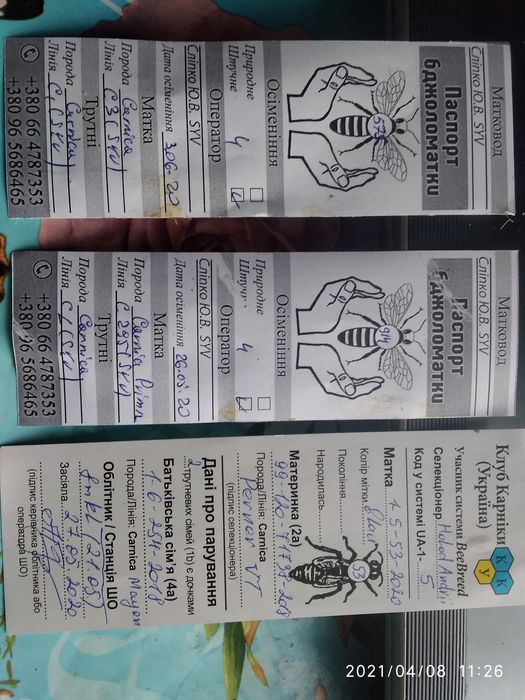 Матковод
Сліпко Ю.В. SYV
Паспорт
бджоломатки
575
Осіменіння
Природне
Штучне 4
Оператор
Сліпко Ю.В. SYV
Дата осіменіння 3.06-20
Матка
Порода Carnica
Лінія С 3 (SYV)
Трутні
Порода Carnica
Лінія С1 (SYV)
+380 66 4787353
+380 96 5686465
Матковод
Сліпко Ю.В. SYV
Паспорт
бджоломатки
914
Осіменіння
Природне
Штучн 4
Оператор
Сліпко Ю.В. SYV
Дата осіменіння 26.05-20
Матка
Порода Carnica
Лінія С 295 (SYV)
Трутні
Порода Carnica
Лінія С 1 (SYV)
+380 66 4787353
+380 96 5686465
Клуб Карніки
(Україна)
К К У
Учасник системи BeeBreed
Селекціонер Holod Andrii
Код у системі UA-1 5
Матка 1-5-53-2020
Колір мітки blau
53
Покоління
Народилась
Материнка (2a)
Порода/Лінія: Carnica
(підпис селекціонера)
Дані про парування
трутневих сімей (1b) є дочками
Батьківська сім'я (4a)
1-6-254-2018
Порода/Лінія: Carnica Mayer
Облітник / Станція ШО
Засіяла 27.05 2020
(підпис керівника обліт­ника або
оператора ШО)
2021/04/08 11:26